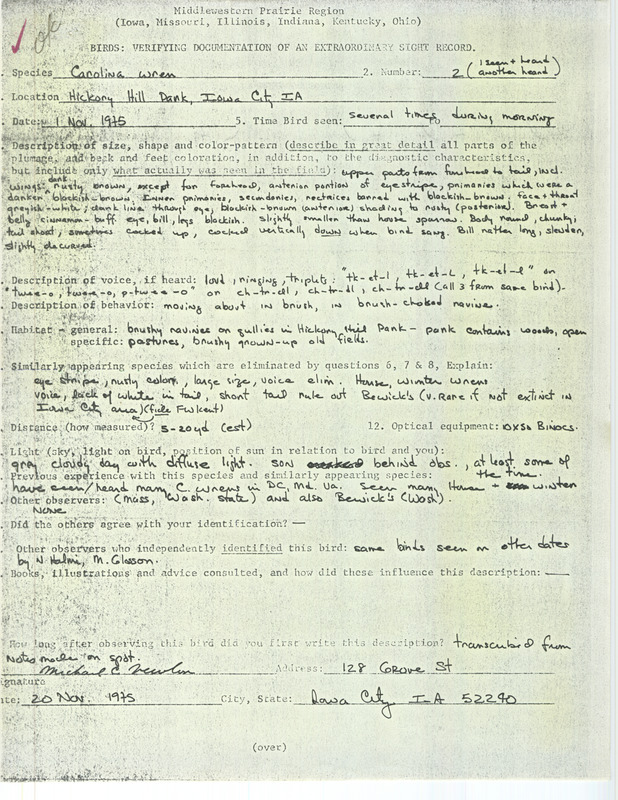 Middlewestern Prairie Region
(Iowa, Missouri, Illinois, Indiana, Kentucky, Ohio)
ok
BIRDS: VERIFYING DOCUMENTATION OF AN EXTRAORDINARY SIGHT RECORD.
. Species Carolina wren 2. Number: 2 (1 seen + heard another heard)
. Location Hickory Hill Park, Iowa City IA
. Date: 1 Nov. 1975 5. Time Bird seen: several times during morning
. Description of size, shape and color-pattern (describe in great detail all parts of the
plumage, and beak and feet coloration, in addition, to the diagnostic characteristics,
but include only what actually was seen in the field): upper parts from forehead to tail, incl.
wings dark rusty brown, except for forehead, anterior portion of eyestripe, primaries which were a
darker blackish-brown. Inner primonies, secondaries, rectrices barred with blackish-brown; face + throat
greyish-white; dark line through eye, blackish-brown (anterior) shading to rusty (posterior). Breast +
belly cinnamon-buff. eye, bill, legs blackish. Slightly smaller than house sparrow. Body round, chunky;
tail short, sometimes cocked up, cocked vertically down when bird sang. Bill rather long, slender,
slightly decurved.
. Description of voice, if heard: loud, ringing, triplets: "tk-et-l, tk-et-l, tk-et-l" or
"twee-o, twee-o, p-twee-o" or ch-tr-dl, ch-tr-dl, ch-tr-dl (all 3 from same bird).
. Description of behavior: moving about in brush, in brush-choked ravine.
. Habitat - general: brushy ravines or gullies in Hickory Hill Park - park contains woods, open
specific: pastures, brushy grown-up old fields.
Similarly appearing species which are eliminated by questions 6, 7 & 8, Explain:
eye stripe, rusty color, large size, voice elim. House, winter wrens
voice, lack of white in tail, short tail rule out Bewick's (v. rare if not extinct in
Iowa City area) (fide FW Kent)
Distance (how measured)? 5-20yd (est) 12. Optical equipment: 10X50 Binocs.
. Light (sky, light on bird, position of sun in relation to bird and you):
grey cloudy day with diffuse light. sun behind obs., at least some of the time.
. Previous experience with this species and similarly appearing species:
have seen/heard many C. wrens in DC, Md. Va. Seen many House + winter
. Other observers: (Mass, Wash. state) and also Bewick's (Wash).
None
. Did the others agree with your identification? —
. Other observers who independently identified this bird: same birds seen on other dates
by N. Halmi, M. Glasson.
. Books, illustrations and advice consulted, and how did these influence this description: —
. How long after observing this bird did you first write this description? transcribed from
notes made on spot.
Michael C. Newlon Address: 128 Grove St
ignature
te: 20 Nov. 1975 City, State: Iowa City IA 52240
(over)